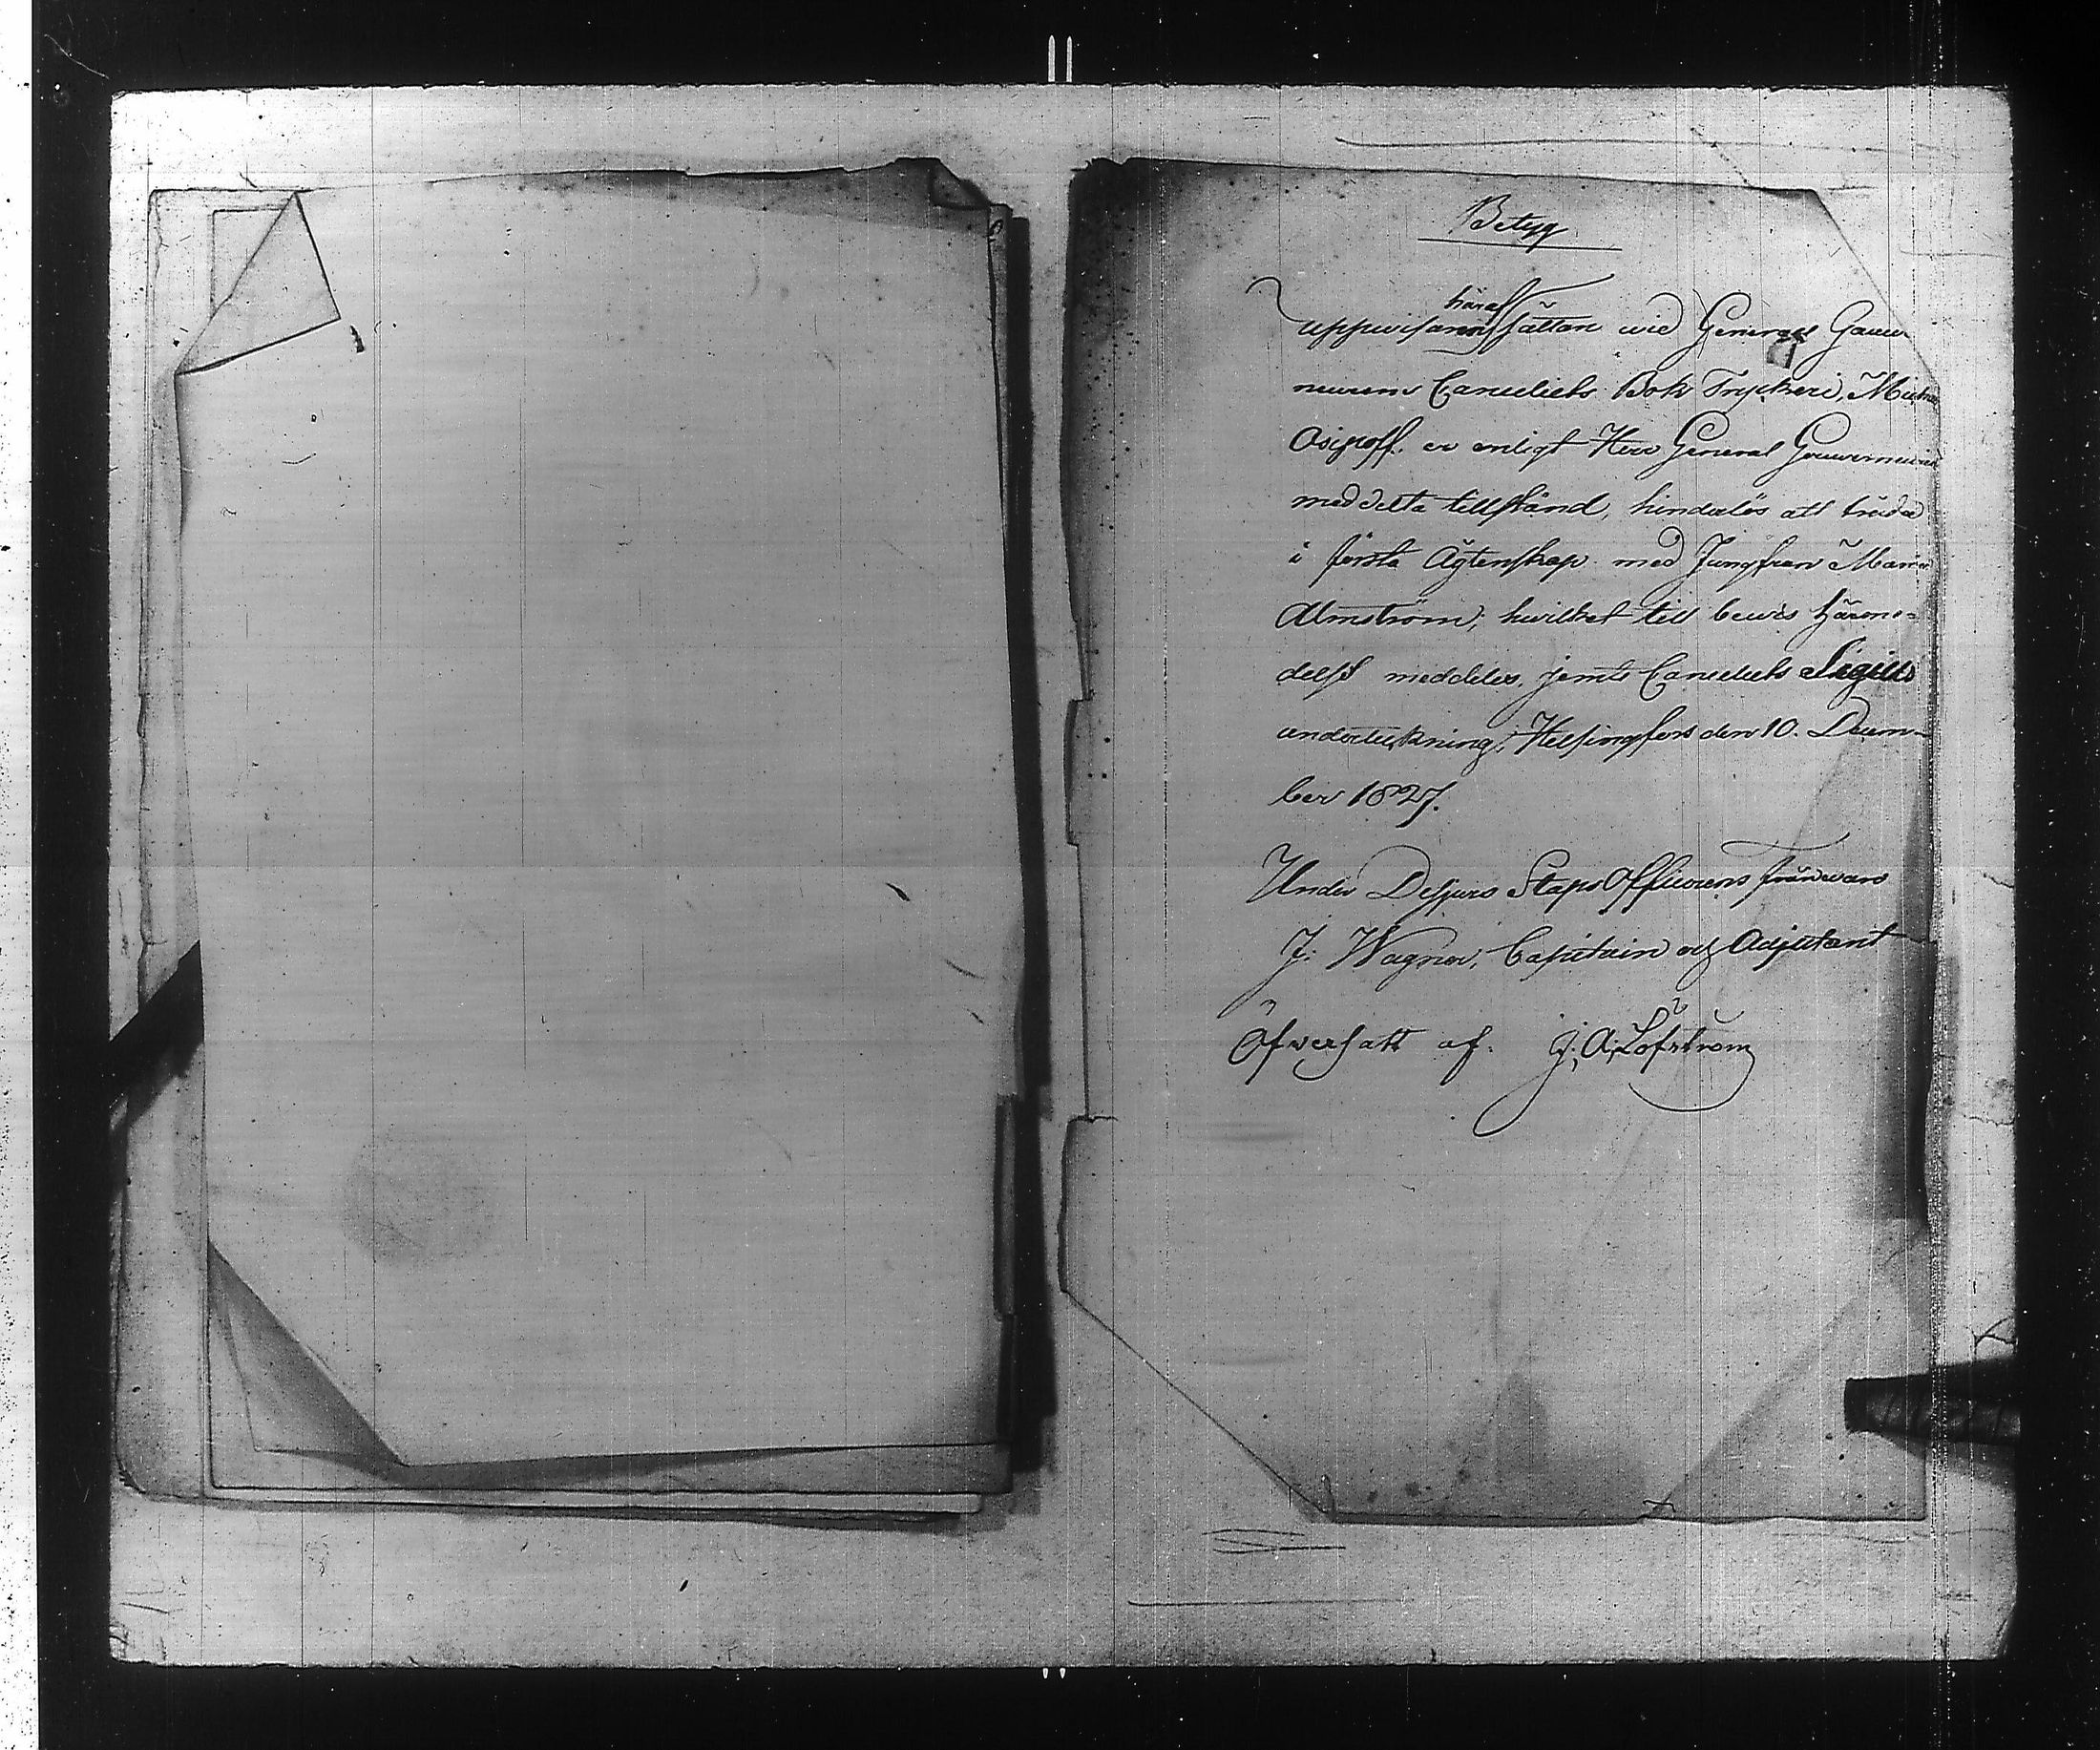 Betyg
häraf
uppvisaren, Sättan wid General Gouver
neurens Cancellies Bok Tryckeri, Michael
Osipoff. er enligt Herr General Gouverneurens
meddelta tillstånd, hinderlös att träda
i första Ägtenskap med Jungfrun Maria
Almström; hvilket till bewis härme-
delst meddeles, jemte Cancellets Sigills
undertrykning, Helsingfors den 10. Decem-
ber 1827.
Under Dejours Staps Officerens frånwaro
J: Wagner, Capitain och Adjutant
Öfversatt af. J: A: Löfström